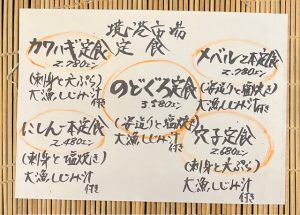 境港市場
定食
カワハギ定食
2.780エン
(刺身と天ぷら)
大漁しじみ汁
付き
メバル一本定食
2.780エン
(姿造りと塩焼き)
大漁しじみ汁
付き
のどぐろ定食
3580エン
(姿造りと塩焼き)
大漁しじみ汁
付き
にしん一本定食
2.480エン
(刺身と塩焼き)
大漁しじみ汁
付き
穴子定食
2.680エン
(刺身と天ぷら)
大漁しじみ汁
付き